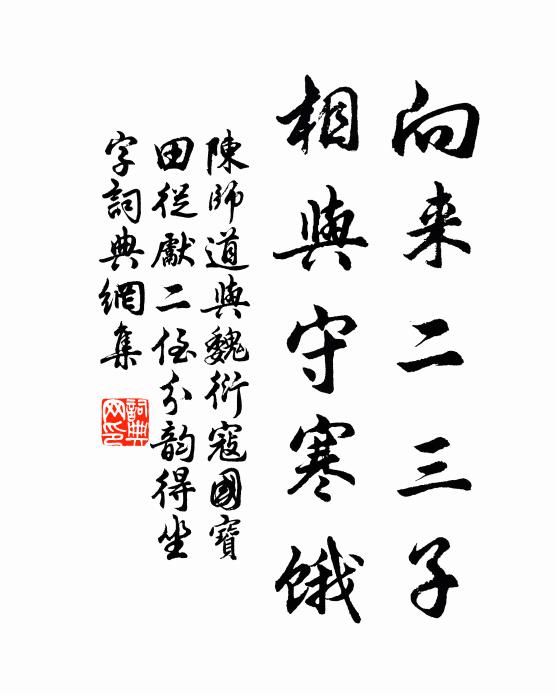 向来二三子
相與守寒餓
陳師道與魏衍寇國寶
田從獻二侄分韵得坐
字詞典網集
詞典
网印